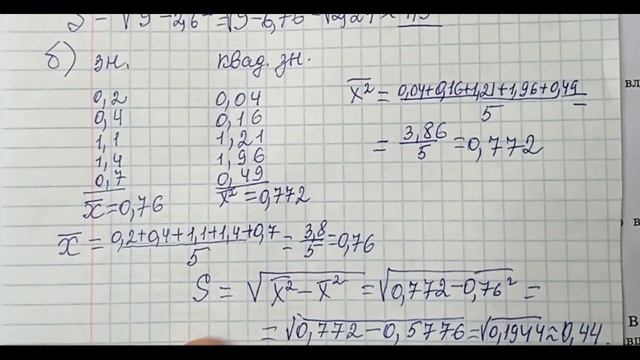 S = √9 − 2,6² = √9 − 6,76 = √2,24 ≈
б) зн. квад. зн.
0,2 0,04
0,4 0,16
1,1 1,21
1,4 1,96
0,7 0,49
x̄ = 0,76 x̄² = 0,772
x̄² = 0,04+0,16+1,21+1,96+0,49 / 5
= 3,86 / 5 = 0,772
x̄ = 0,2+0,4+1,1+1,4+0,7 / 5 = 3,8 / 5 = 0,76
S = √x̄² − x̄² = √0,772 − 0,76² =
= √0,772 − 0,5776 = √0,1944 ≈ 0,44.
вл
в
В